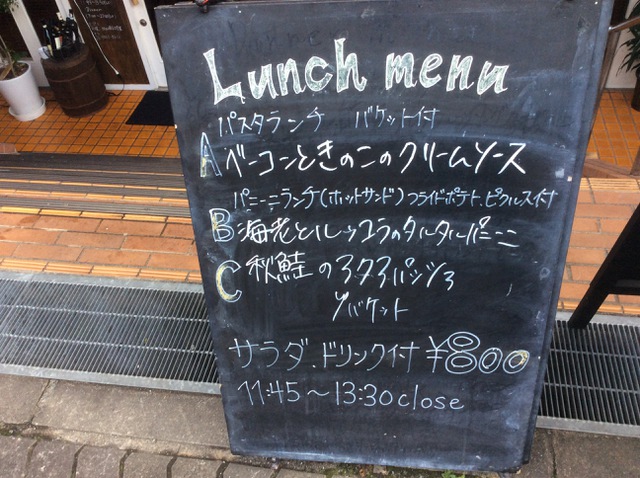 Lunch menu
パスタランチ バケット付
A ベーコンときのこのクリームソース
パニーニランチ(ホットサンド)フライドポテト、ピクルス付
B 海老とルッコラのタルタルパニーニ
C 秋鮭のアクアパッツァ
バケット
サラダ、ドリンク付 ¥800
11:45~13:30close